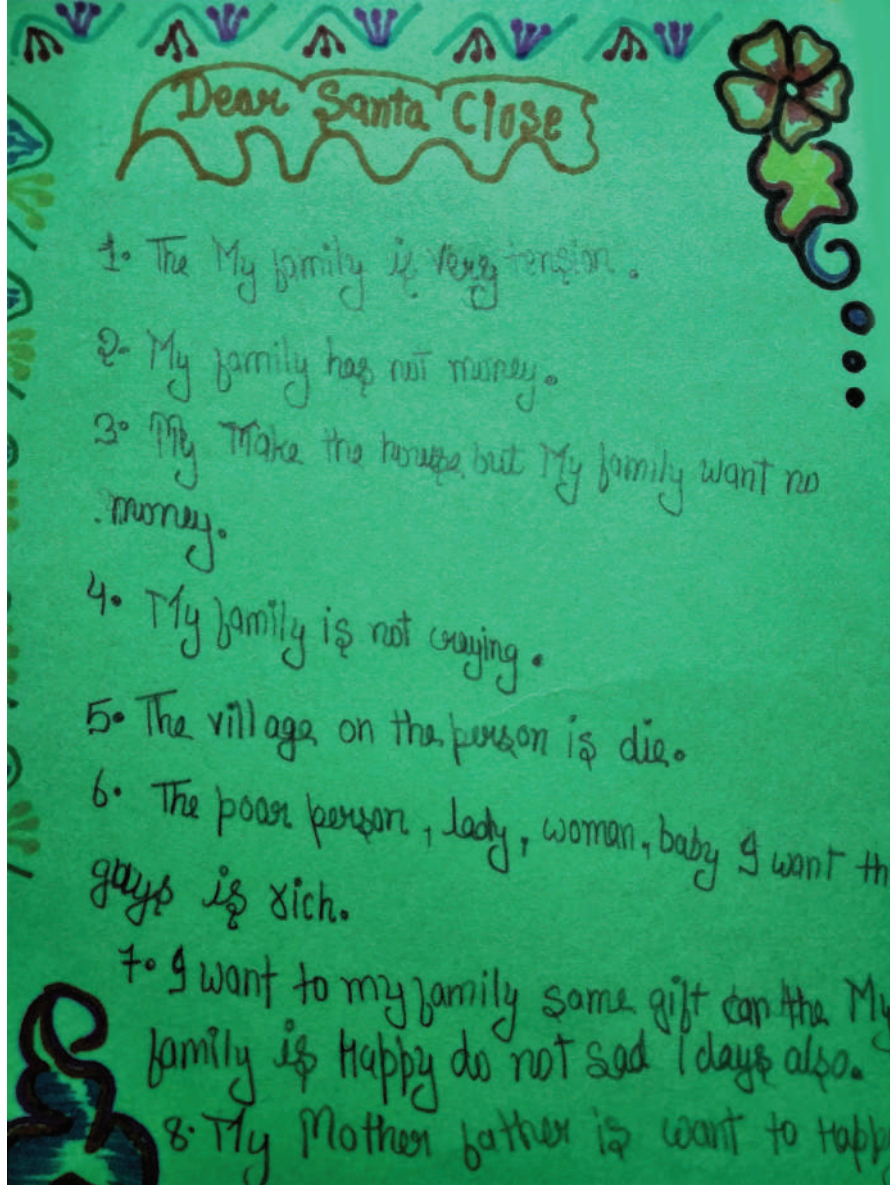 Dear Santa Close
1. The My family is very tension.
2- My family has not money.
3. My Make the house but My family want no
money.
4. My family is not craying.
5. The village on the person is die.
6. The poor person, lady, woman, baby I want th
gays is rich.
7. I want to my family same gift can the My
family is Happy do not sad 1 days also.
8. My Mother father is want to Happy